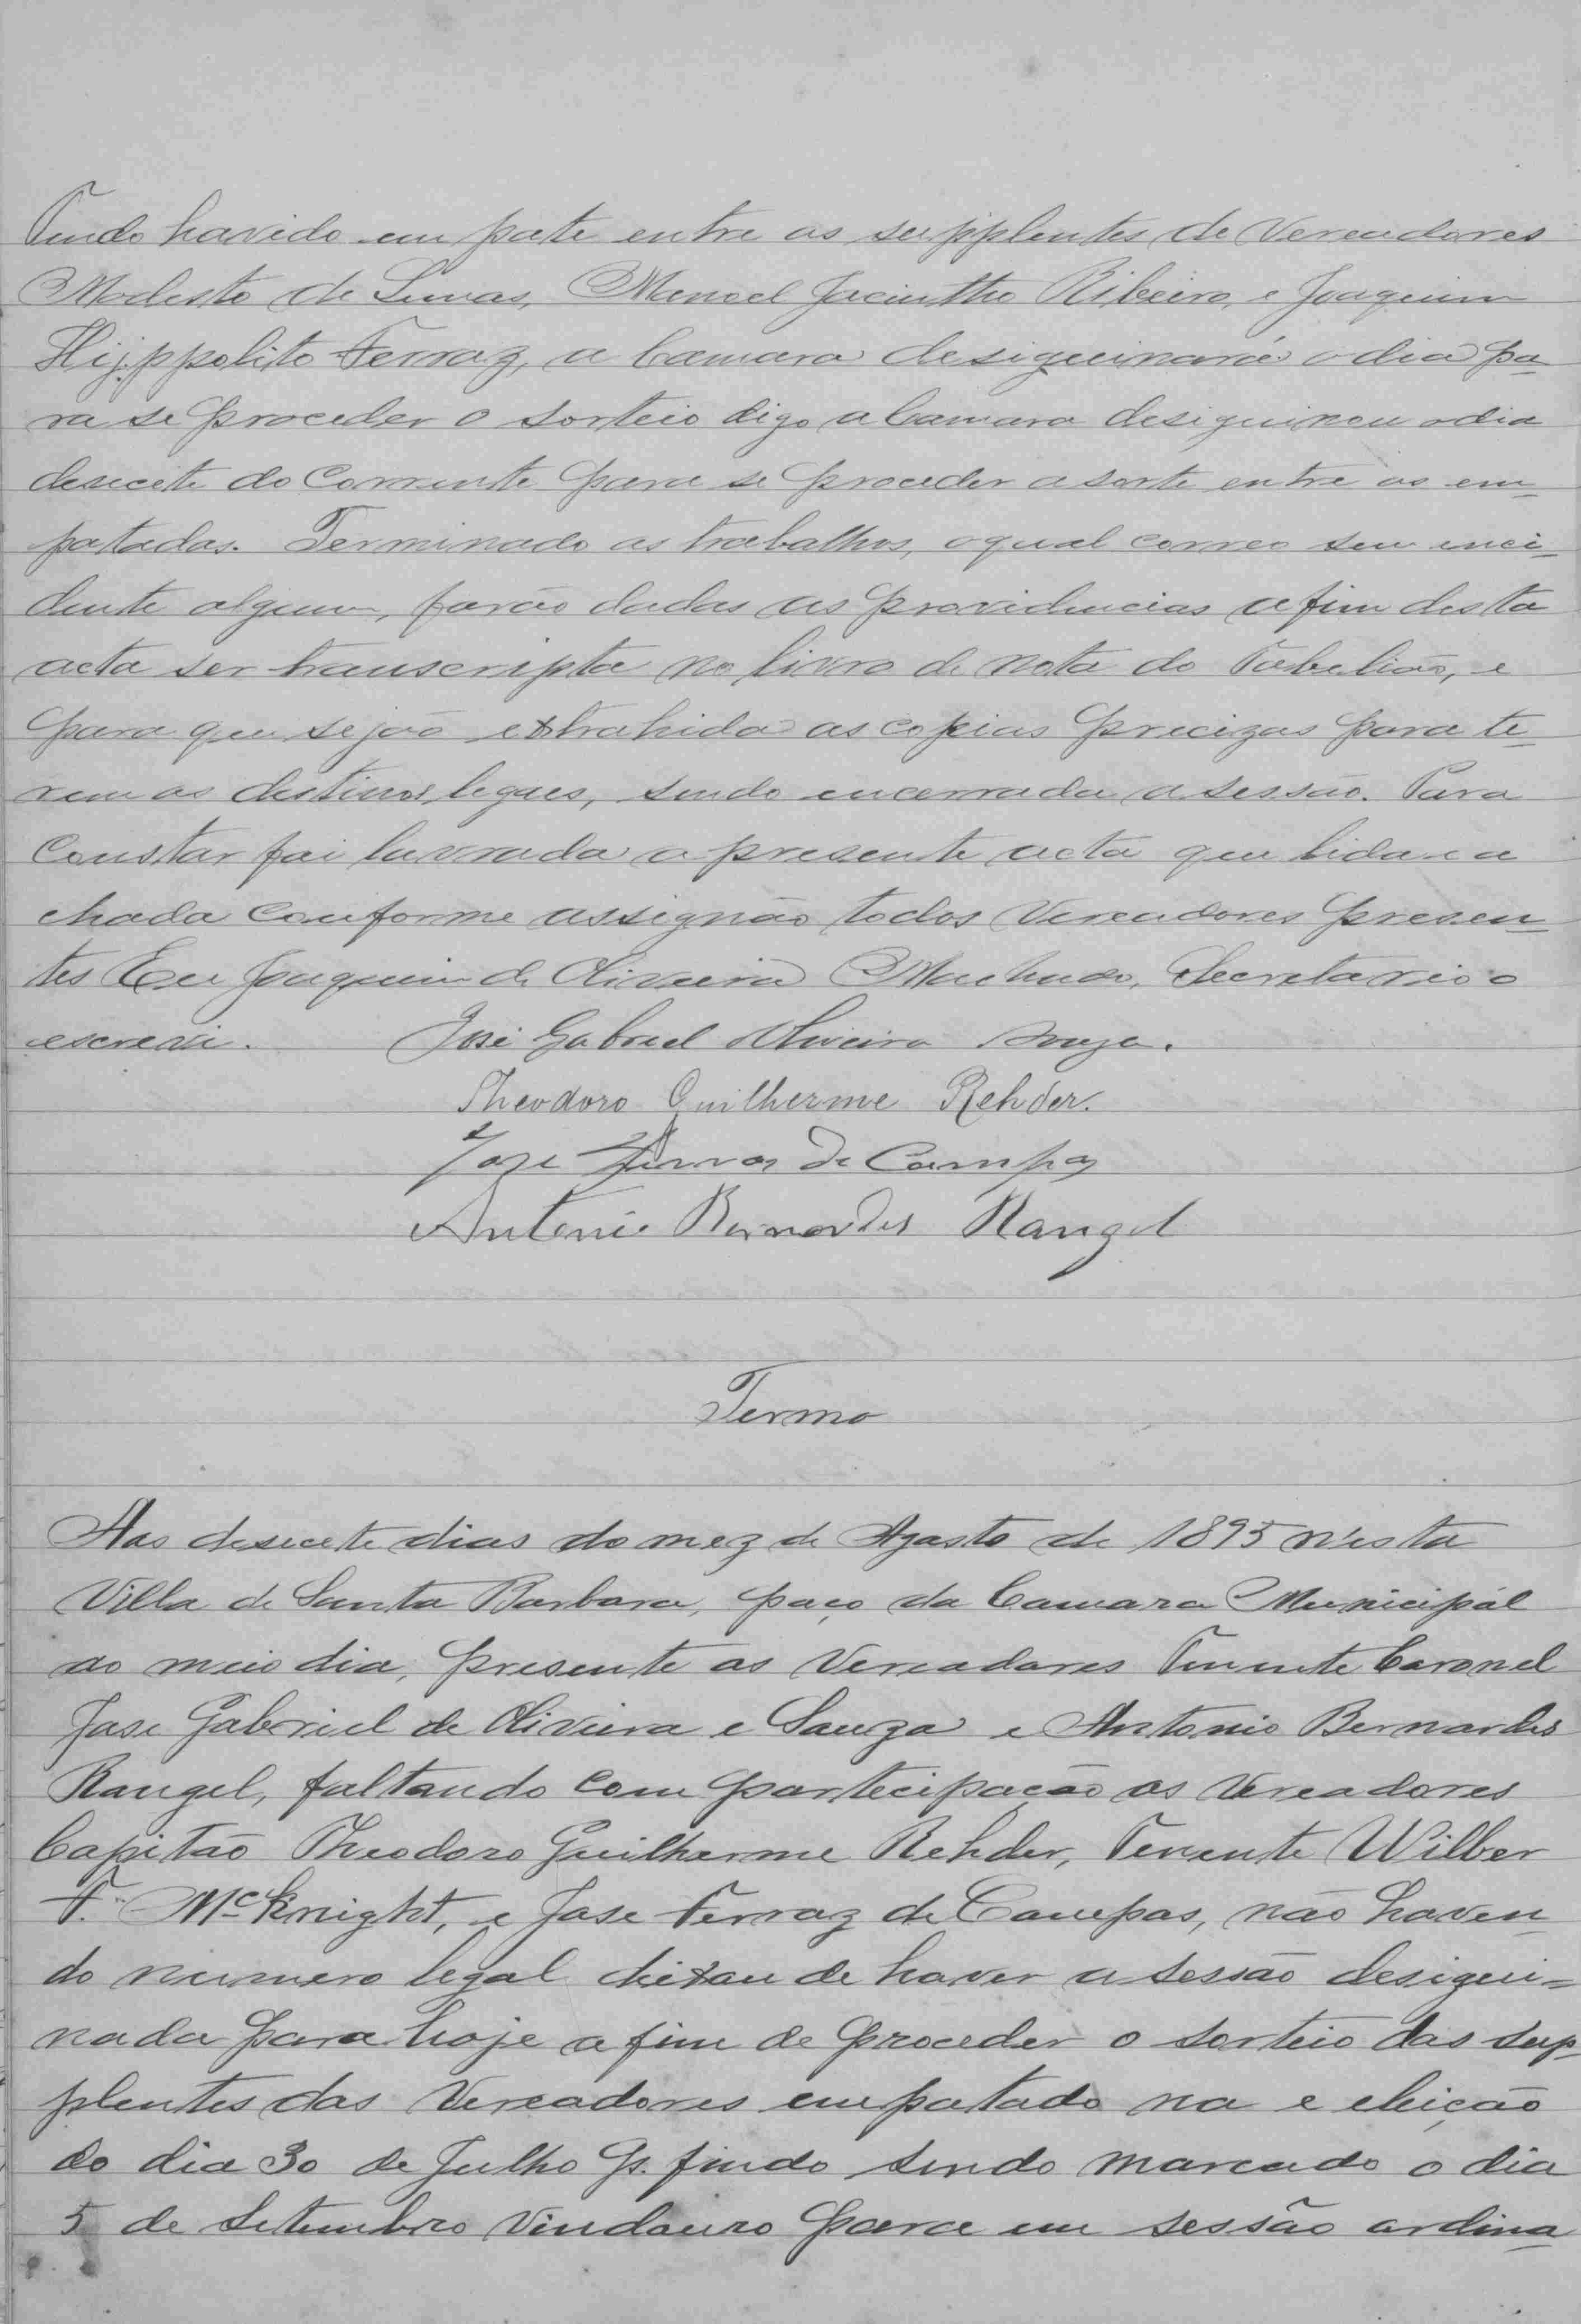 Tendo havido em pate entre os supplentes de Vereadores
Modesto de Lemas, Manoel Jacintho Ribeiro, e Joaquim
Hijppolito Ferraz, a Camara desiguinará o dia pa-
ra se proceder o sorteio digo a Camara desiguinou o dia
desecete do Corrente para se proceder a sorte entre os em-
patados. Terminado os trabalhos, o qual correo sem inci-
dente algum, forão dadas as providencias a fim desta
acta ser transcripta no livro de nota do Tabelião, e
para que sejão extrahida as copias precizas para te-
rem os destinos legaes, sendo encerrada a sessão. Para
Constar foi lavrada a presente acta que lida e a
chada Conforme assignão todos Vereadores presen-
tes Eu Joaquim de Oliveira Machado, Secretario o
escrevi. José Gabriel Oliveira Souza.
Theodoro Guilherme Rehder.
Joze Ferras de Campos
Antonio Bernardes Rangel
Termo
Aos desecete dias do mez de Agosto de 1895 n'esta
Villa de Santa Barbara, paço da Camara Municipal
ao meio dia, presente os Vereadores Tenente Coronel
Jose Gabriel de Oliveira e Souza e Antonio Bernardes
Rangel, faltando Com partecipação os Vereadores
Capitão Theodoro Guilherme Rehder, Tenente Wilber
F. McKnight, e Jose Ferraz de Campos, não haven-
do numero legal deixou de haver a sessão desigui=
nada para hoje a fim de proceder o sorteio dos sup-
plentes dos Vereadores empatado na e eleição
do dia 30 de Julho p. findo sendo marcado o dia
5 de Setembro Vindouro para em sessão ordina-